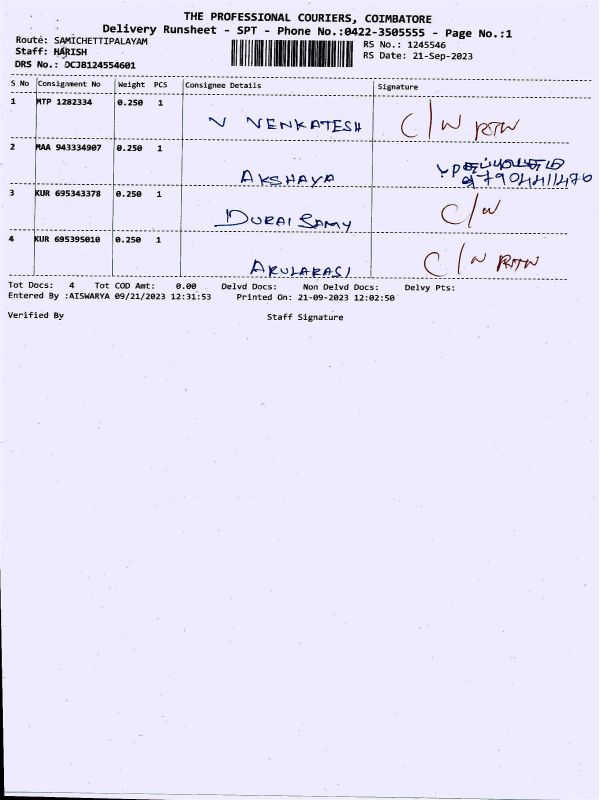 THE PROFESSIONAL COURIERS, COIMBATORE
Delivery Runsheet - SPT - Phone No.:0422-3505555 - Page No.:1
Route: SAMICHETTIPALAYAM
RS No.: 1245546
Staff: HARISH
RS Date: 21-Sep-2023
DRS No.: DCJB124554601
S No Consignment No Weight PCS Consignee Details Signature
1 MTP 1282334 0.250 1
V VENKATESH C/W RTW
2 MAA 943334907 0.250 1
AKSHAYA 7904411476
3 KUR 695343378 0.250 1
DURAI SAMY C/W
4 KUR 695395010 0.250 1
ARULARASI C/W RTW
Tot Docs: 4 Tot COD Amt: 0.00 Delvd Docs: Non Delvd Docs: Delvy Pts:
Entered By :AISWARYA 09/21/2023 12:31:53 Printed On: 21-09-2023 12:02:50
Verified By Staff Signature